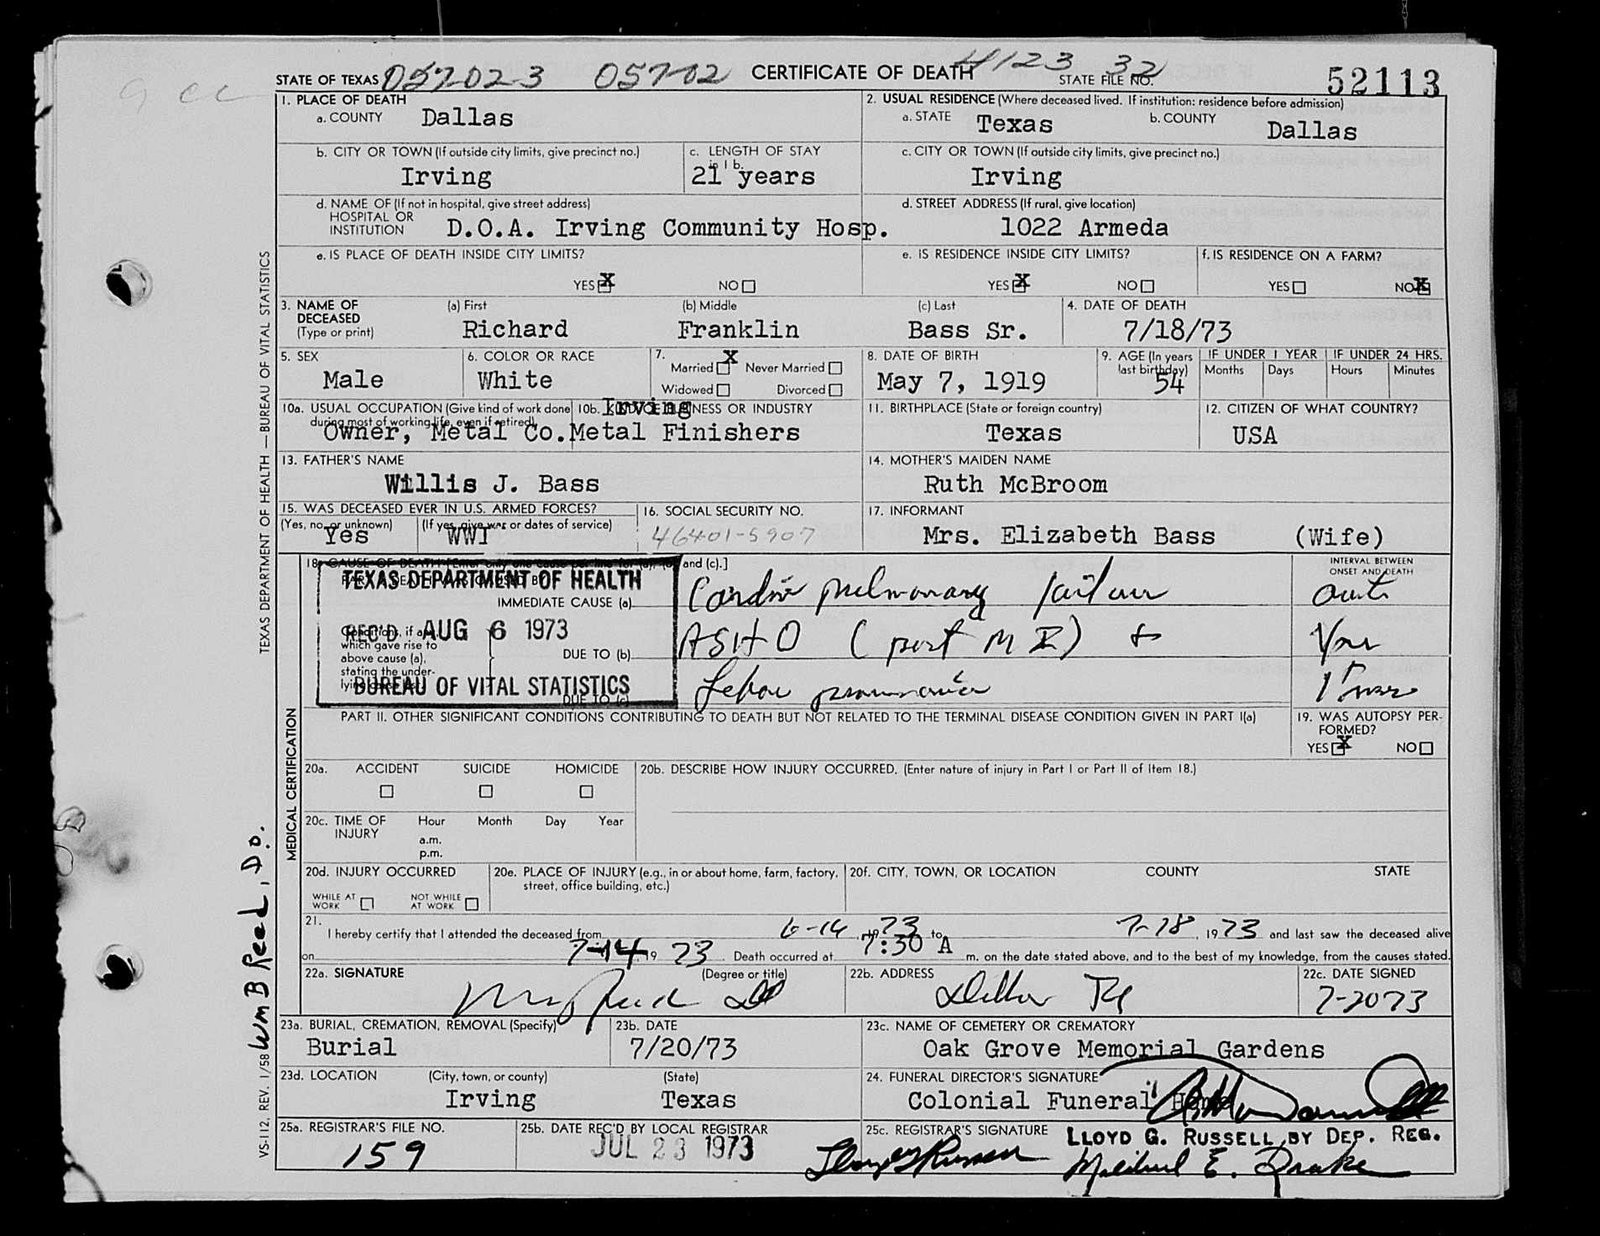 STATE OF TEXAS 057023 05702 CERTIFICATE OF DEATH 4123 32 STATE FILE NO. 52113
1. PLACE OF DEATH
a. COUNTY Dallas
2. USUAL RESIDENCE (Where deceased lived. If institution: residence before admission)
a. STATE Texas b. COUNTY Dallas
b. CITY OR TOWN (If outside city limits, give precinct no.)
Irving
c. LENGTH OF STAY in 1 b.
21 years
c. CITY OR TOWN (If outside city limits, give precinct no.)
Irving
d. NAME OF (If not in hospital, give street address)
HOSPITAL OR
INSTITUTION D.O.A. Irving Community Hosp.
d. STREET ADDRESS (If rural, give location)
1022 Armeda
e. IS PLACE OF DEATH INSIDE CITY LIMITS?
YES X NO
e. IS RESIDENCE INSIDE CITY LIMITS?
YES X NO
f. IS RESIDENCE ON A FARM?
YES NO X
3. NAME OF
DECEASED
(Type or print)
(a) First
Richard
(b) Middle
Franklin
(c) Last
Bass Sr.
4. DATE OF DEATH
7/18/73
5. SEX
Male
6. COLOR OR RACE
White
7.
Married X Never Married
Widowed Divorced
8. DATE OF BIRTH
May 7, 1919
9. AGE (In years
last birthday)
54
IF UNDER 1 YEAR
Months Days
IF UNDER 24 HRS.
Hours Minutes
10a. USUAL OCCUPATION (Give kind of work done
during most of working life, even if retired)
Owner, Metal Co.
10b. KIND OF BUSINESS OR INDUSTRY
Irving
Metal Finishers
11. BIRTHPLACE (State or foreign country)
Texas
12. CITIZEN OF WHAT COUNTRY?
USA
13. FATHER'S NAME
Willis J. Bass
14. MOTHER'S MAIDEN NAME
Ruth McBroom
15. WAS DECEASED EVER IN U.S. ARMED FORCES?
(Yes, no, or unknown) (If yes, give war or dates of service)
Yes WWI
16. SOCIAL SECURITY NO.
46401-5907
17. INFORMANT
Mrs. Elizabeth Bass (Wife)
18. CAUSE OF DEATH [Enter only one cause per line for (a), (b) and (c).]
TEXAS DEPARTMENT OF HEALTH
REC'D AUG 6 1973
BUREAU OF VITAL STATISTICS
IMMEDIATE CAUSE (a) Cardio pulmonary failure
Conditions, if any
which gave rise to
above cause (a),
stating the under-
lying
DUE TO (b) ASHD (post M I) &
DUE TO (c) Lobar pneumonia
INTERVAL BETWEEN
ONSET AND DEATH
PART II. OTHER SIGNIFICANT CONDITIONS CONTRIBUTING TO DEATH BUT NOT RELATED TO THE TERMINAL DISEASE CONDITION GIVEN IN PART I(a)
19. WAS AUTOPSY PER-
FORMED?
YES X NO
20a. ACCIDENT SUICIDE HOMICIDE
20b. DESCRIBE HOW INJURY OCCURRED. (Enter nature of injury in Part I or Part II of Item 18.)
20c. TIME OF
INJURY
Hour Month Day Year
a.m.
p.m.
20d. INJURY OCCURRED
WHILE AT
WORK
NOT WHILE
AT WORK
20e. PLACE OF INJURY (e.g., in or about home, farm, factory,
street, office building, etc.)
20f. CITY, TOWN, OR LOCATION COUNTY STATE
21.
I hereby certify that I attended the deceased from 6-14, 1973 to 7-18, 1973 and last saw the deceased alive
on 7-14 19 73. Death occurred at 7:30 A m. on the date stated above, and to the best of my knowledge, from the causes stated.
22a. SIGNATURE (Degree or title)
22b. ADDRESS
22c. DATE SIGNED
7-20 73
23a. BURIAL, CREMATION, REMOVAL (Specify)
Burial
23b. DATE
7/20/73
23c. NAME OF CEMETERY OR CREMATORY
Oak Grove Memorial Gardens
23d. LOCATION (City, town, or county) (State)
Irving Texas
24. FUNERAL DIRECTOR'S SIGNATURE
Colonial Funeral Home
25a. REGISTRAR'S FILE NO.
159
25b. DATE REC'D BY LOCAL REGISTRAR
JUL 23 1973
25c. REGISTRAR'S SIGNATURE LLOYD G. RUSSELL, BY DEP. REG.
Mildred E. Drake
TEXAS DEPARTMENT OF HEALTH — BUREAU OF VITAL STATISTICS
MEDICAL CERTIFICATION
VS-112, REV. 1/58
Wm B Reed, Do.